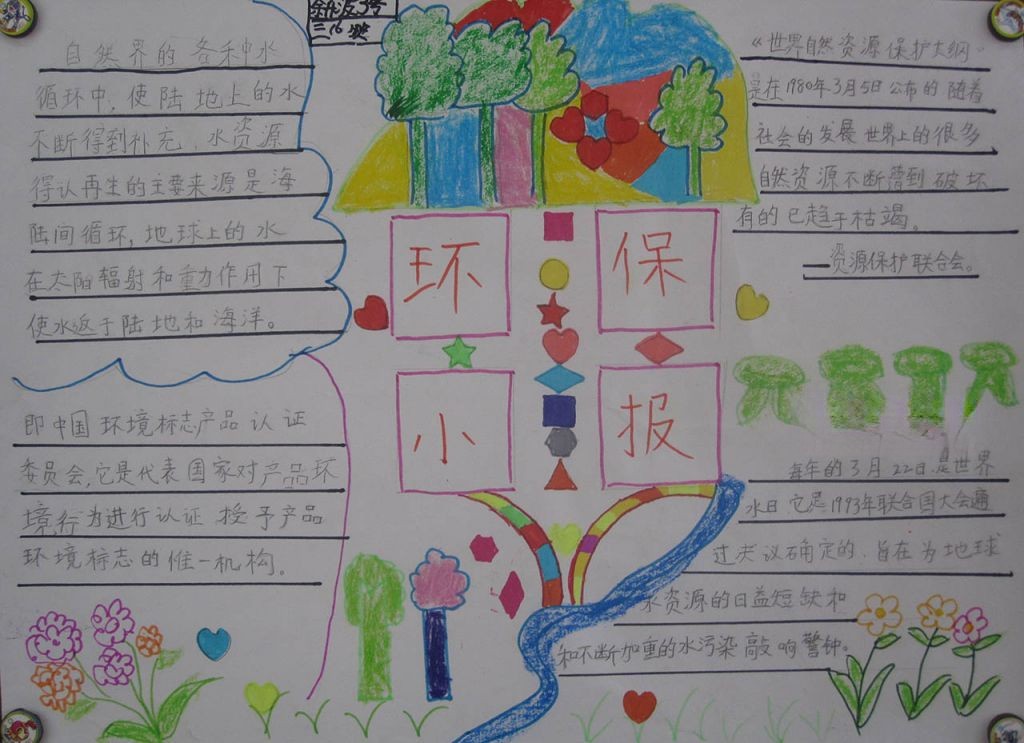 三16
自然界的各种水
循环中,使陆地上的水
不断得到补充,水资源
得认再生的主要来源是海
陆间循环,地球上的水
在太阳辐射和重力作用下
使水返于陆地和海洋。
环保
小报
《世界自然资源保护大纲》
是在1980年3月5日公布的随着
社会的发展世界上的很多
自然资源不断遭到破坏
有的已趋于枯竭。
——资源保护联合会。
即中国环境标志产品认证
委员会,它是代表国家对产品环
境行为进行认证授予产品
环境标志的惟一机构。
每年的3月22日是世界
水日它是1993年联合国大会通
过决议确定的,旨在为地球
水资源的日益短缺和
和不断加重的水污染敲响警钟。